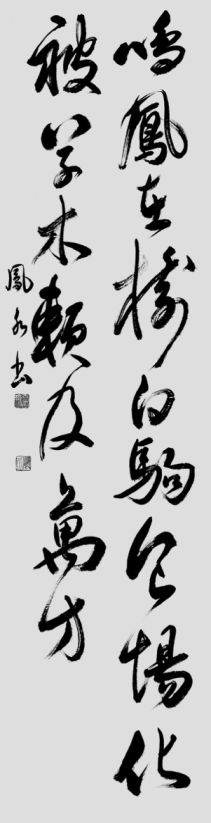 鳴鳳在樹白駒食場化
被草木賴及萬方
鳳 書